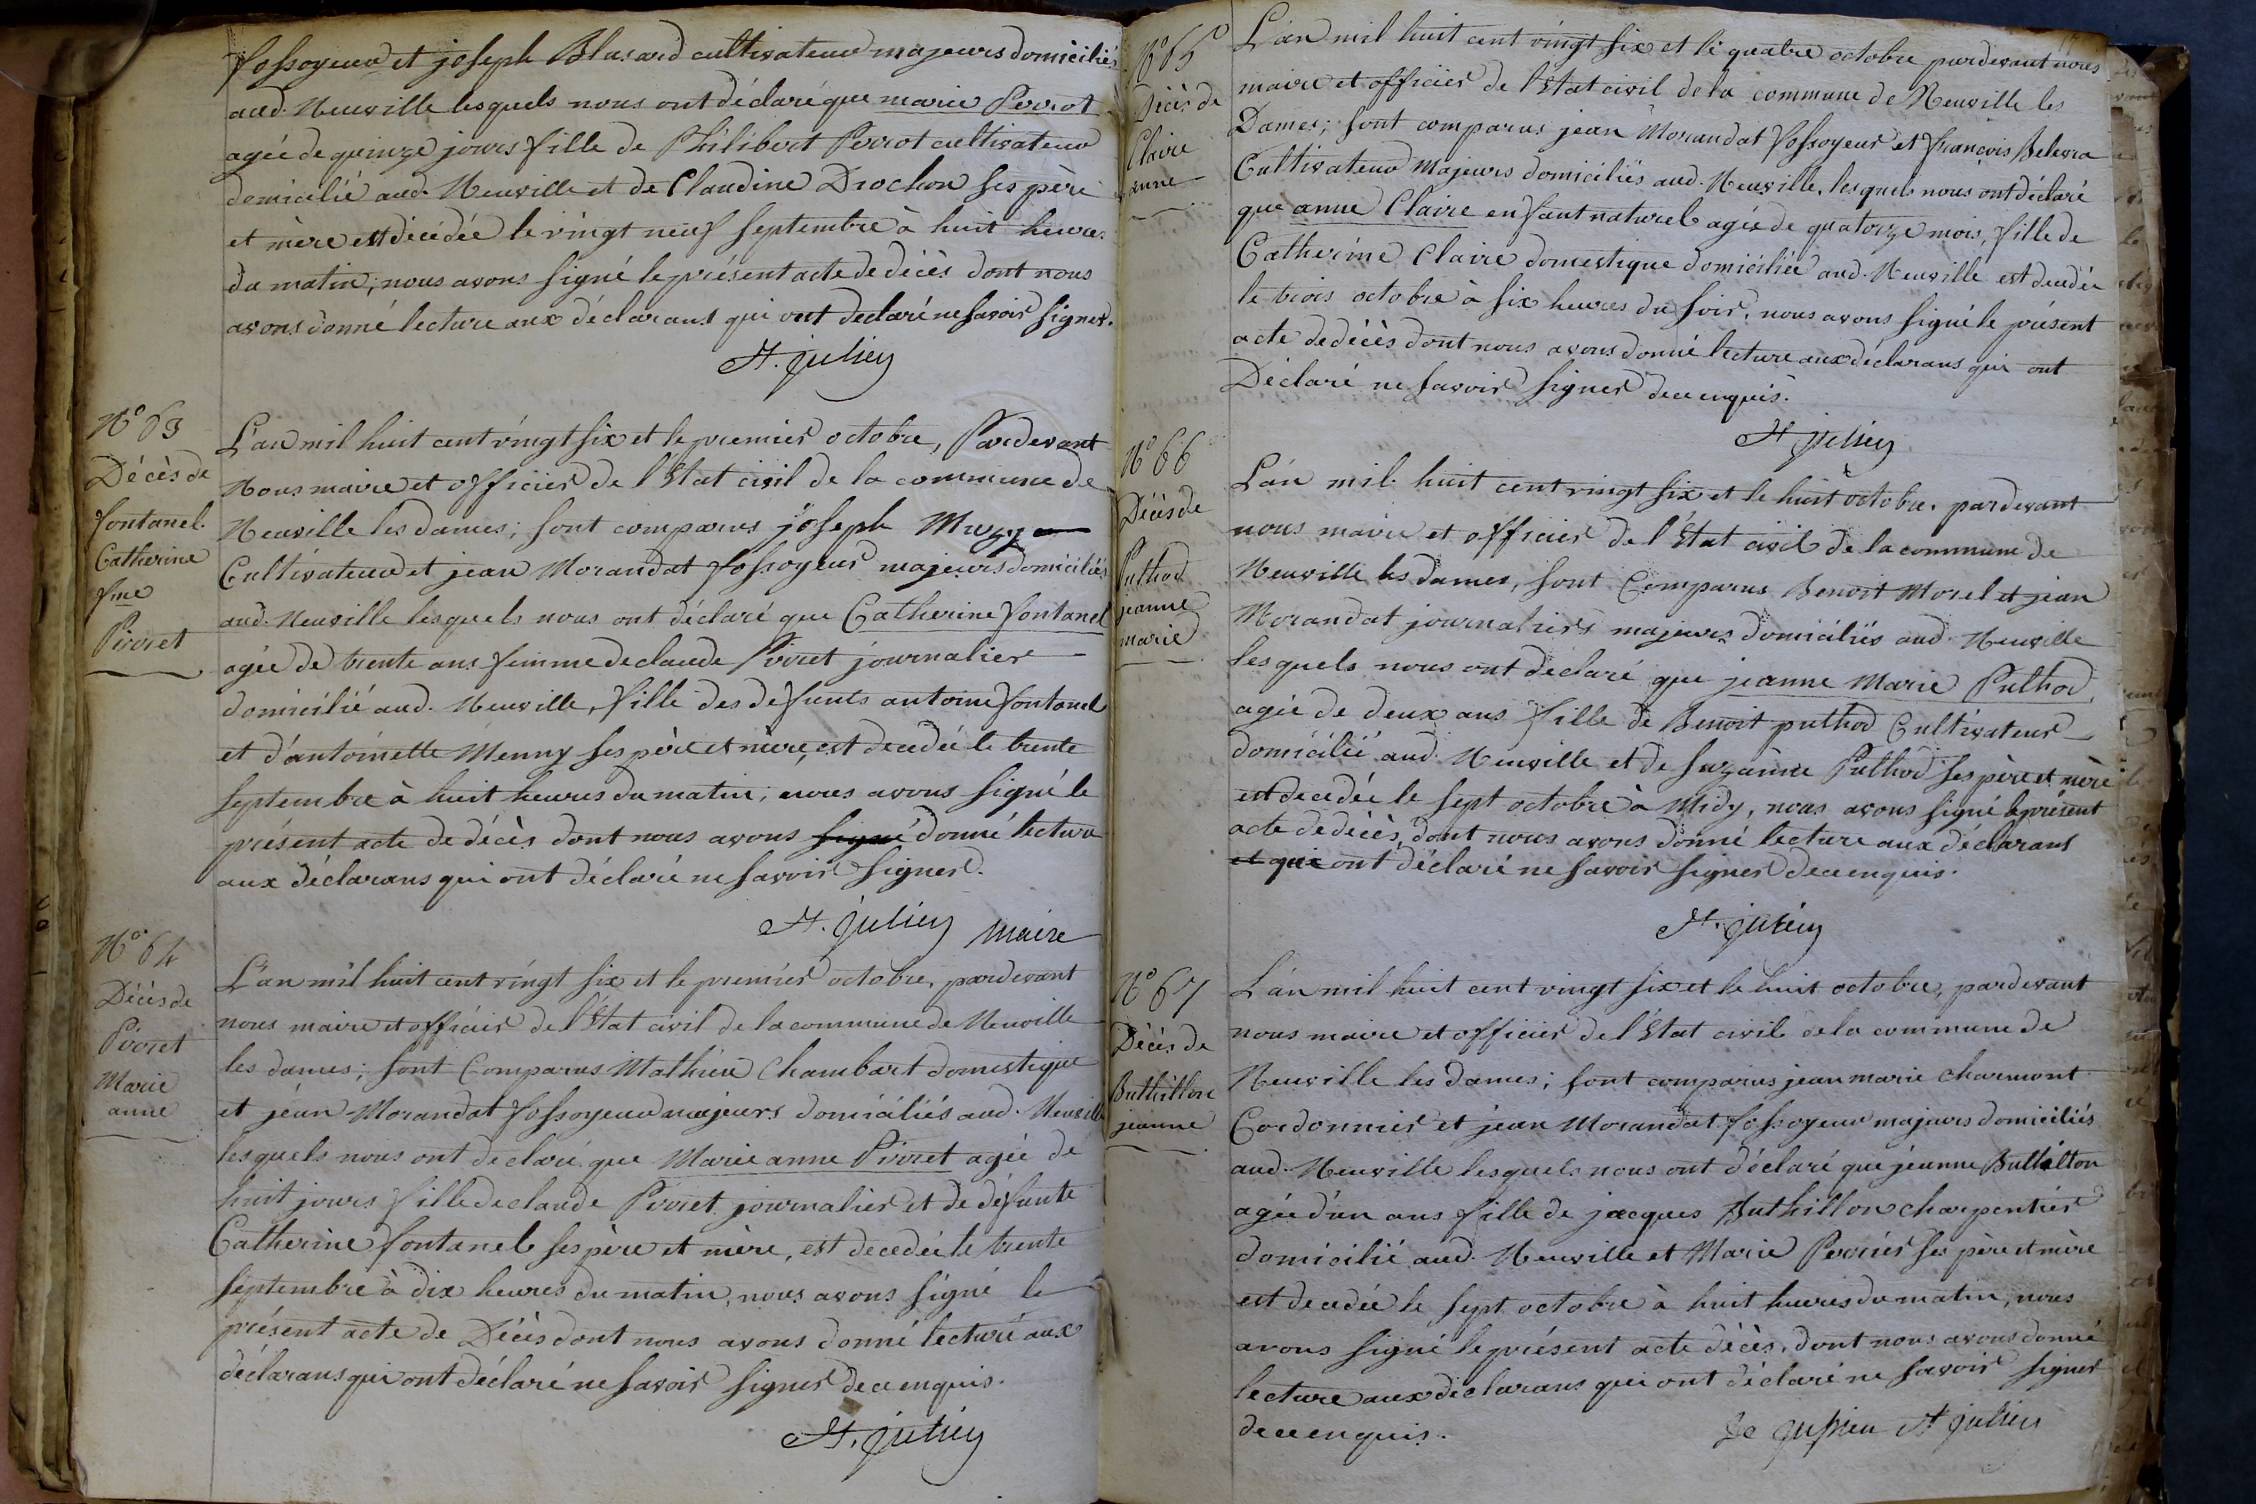 fossoyeur et joseph Blusard cultivateur majeurs domiciliés
aud. Neuville lesquels nous ont déclaré que marie Perrot
agée de quinze jours fille de Philibert Perrot cultivateur
domicilié aud. Neuville et de Claudine Drochon ses père
et mère est décédée le vingt neuf septembre à huit heures
du matin; nous avons signé le présent acte de décès dont nous
avons donné lecture aux déclarans qui ont declaré ne savoir signer.
St. julien
N° 63
Décès de
fontanel
Catherine
fme
Pivret
L'an mil huit cent vingt six et le premier octobre, Pardevant
Nous maire et officier de l'Etat civil de la commune de
Neuville les dames; sont comparus joseph
Cultivateur et jean Morandat fossoyeur majeurs domiciliés
aud. Neuville lesquels nous ont déclaré que Catherine fontanel
agée de trente ans femme de claude Pivret journalier
domicilié aud. Neuville, fille des defunts antoine fontanel
et d'antoinette Menny ses père et mère, est decedée le trente
septembre à huit heures du matin; nous avons signé le
présent acte de décès dont nous avons signé donné lecture
aux déclarans qui ont déclaré ne savoir signer.
St. julien maire
N° 64
Décès de
Pivret
Marie
anne
L'an mil huit cent vingt six et le premier octobre, pardevant
nous maire et officier de l'Etat civil de la commune de Neuville
les dames; sont Comparus Mathieu Chambart domestique
et jean Morandat fossoyeur majeurs domiciliés aud. Neuville
lesquels nous ont declaré que Marie anne Pivret agée de
huit jours fille de claude Pivret journalier et de défunte
Catherine fontanel ses père et mère, est decedée le trente
septembre à dix heures du matin, nous avons signé le
présent acte de Décès dont nous avons donné lecture aux
déclarans qui ont déclaré ne savoir signer de ce enquis.
St. julien
N° 65
Décès de
Claire
anne
L'an mil huit cent vingt six et le quatre octobre pardevant nous
maire et officier de l'Etat civil de la commune de Neuville les
Dames; sont comparus jean Morandat fossoyeur et françois
Cultivateur Majeurs domiciliés aud. Neuville, lesquels nous ont déclaré
que anne Claire enfant naturel agée de quatorze mois, fille de
Catherine Claire domestique domiciliée aud. Neuville est decedée
le trois octobre à six heures du soir, nous avons signé le présent
acte de décès dont nous avons donné lecture aux déclarans qui ont
Déclaré ne savoir signer de ce enquis.
St julien
N° 66
Décès de
Puthod
jeanne
marie
L'an mil huit cent vingt six et le huit octobre, pardevant
nous maire et officier de l'Etat civil de la commune de
Neuville les dames, sont Comparus Benoit Morel et jean
Morandat journaliers majeurs domiciliés aud. Neuville
lesquels nous ont declaré que jeanne Marie Puthod
agée de deux ans fille de Benoit puthod Cultivateur
domicilié aud. Neuville et de suzanne Puthod ses père et mère
est decedée le sept octobre à Midy, nous avons signé le présent
acte de décès, dont nous avons donné lecture aux déclarans
et qui ont déclaré ne savoir signer de ce enquis.
St. julien
N° 67
Décès de
Buthillon
jeanne
L'an mil huit cent vingt six et le huit octobre, pardevant
nous maire et officier de l'Etat civil de la commune de
Neuville les dames; sont comparus jean marie charmont
Cordonnier et jean Morandat fossoyeur majeurs domiciliés
aud. Neuville lesquels nous ont déclaré que jeanne Buthillon
agée d'un ans fille de jacques Buthillon charpentier
domicilié aud. Neuville et Marie Perrier ses père et mère
est decedée le sept octobre à huit heures du matin, nous
avons signé le présent acte décès, dont nous avons donné
lecture aux déclarans qui ont déclaré ne savoir signer
de ce enquis.
De jussieu St julien